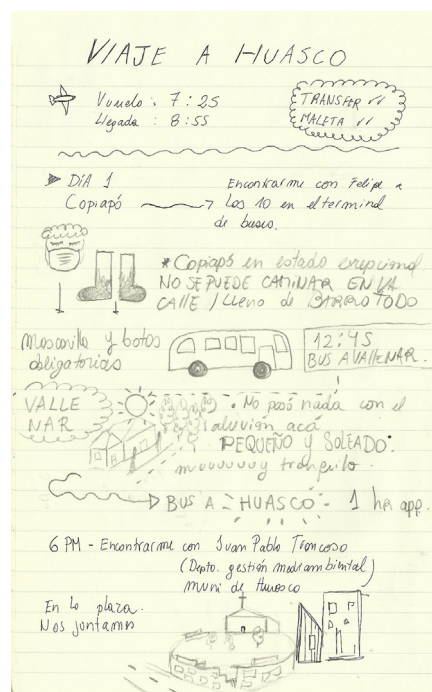 VIAJE A HUASCO
Vuelo : 7:25
Llegada : 8:55
TRANSFER ✓✓
MALETA ✓✓
DÍA 1
Copiapó
Encontrarme con Felipe a
las 10 en el terminal
de buses.
* Copiapó en estado excepcional
NO SE PUEDE CAMINAR EN LA
CALLE / lleno de BARRO TODO
mascarilla y botas
obligatorias
12:45
BUS A VALLENAR.
VALLE
NAR
• No pasó nada con el
aluvión acá
PEQUEÑO y SOLEADO.
muuuuuuy tranquilo.
BUS A HUASCO - 1 hr app.
6 PM - Encontrarme con Juan Pablo Troncoso
(Depto. gestión medrambiental)
muni de Huasco
En la plaza.
Nos juntamos